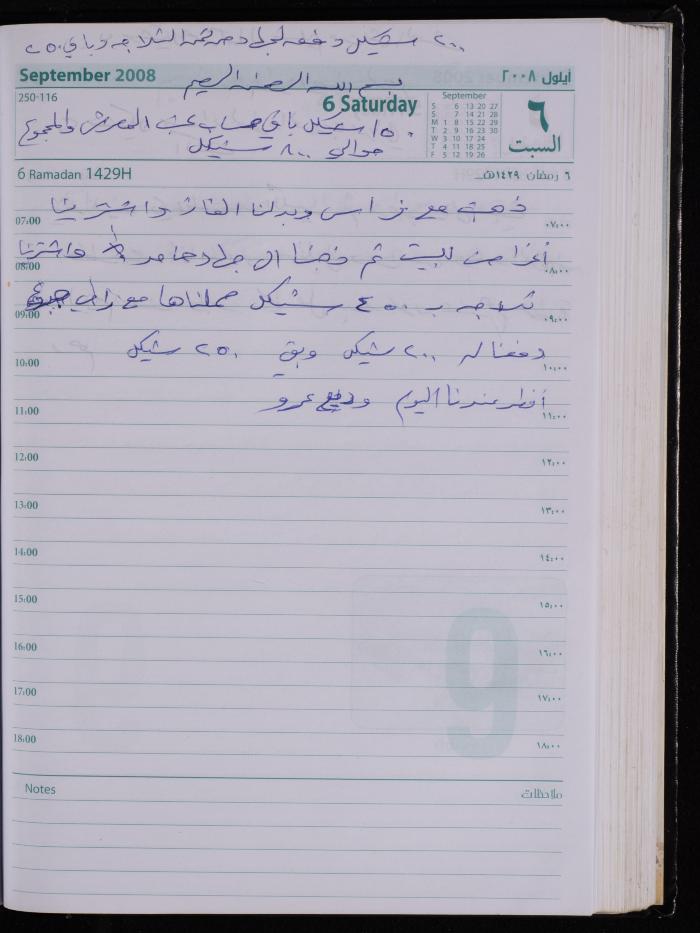 ٢٠٠ شيكل دفعه لجمال دحامر ثمن الثلاجه وباقي ٢٥٠
September 2008
بسم الله الرحمن الرحيم
أيلول ٢٠٠٨
250-116
6 Saturday
September
S 6 13 20 27
S 7 14 21 28
M 1 8 15 22 29
T 2 9 16 23 30
W 3 10 17 24
T 4 11 18 25
F 5 12 19 26
٦
السبت
١٥٠ شيكل باقي حساب والمجموع
حوالي ٨٠٠ شيكل
6 Ramadan 1429H
٦ رمضان ١٤٢٩هـ
ذهبت مع فراس وبدلنا الغاز واشترينا
07:00 ٠٧:٠٠
أغراض للبيت ثم ذهبنا الى واشترينا
08:00 ٠٨:٠٠
ثلاجه ب ٤٥٠ شيكل حملناها مع
09:00 ٠٩:٠٠
دفعنا له ٢٠٠ شيكل وبقي ٢٥٠ شيكل
10:00 ١٠:٠٠
أفطر عندنا اليوم وديع عمرو
11:00 ١١:٠٠
12:00 ١٢:٠٠
13:00 ١٣:٠٠
14:00 ١٤:٠٠
15:00 ١٥:٠٠
16:00 ١٦:٠٠
17:00 ١٧:٠٠
18:00 ١٨:٠٠
9
Notes ملاحظات